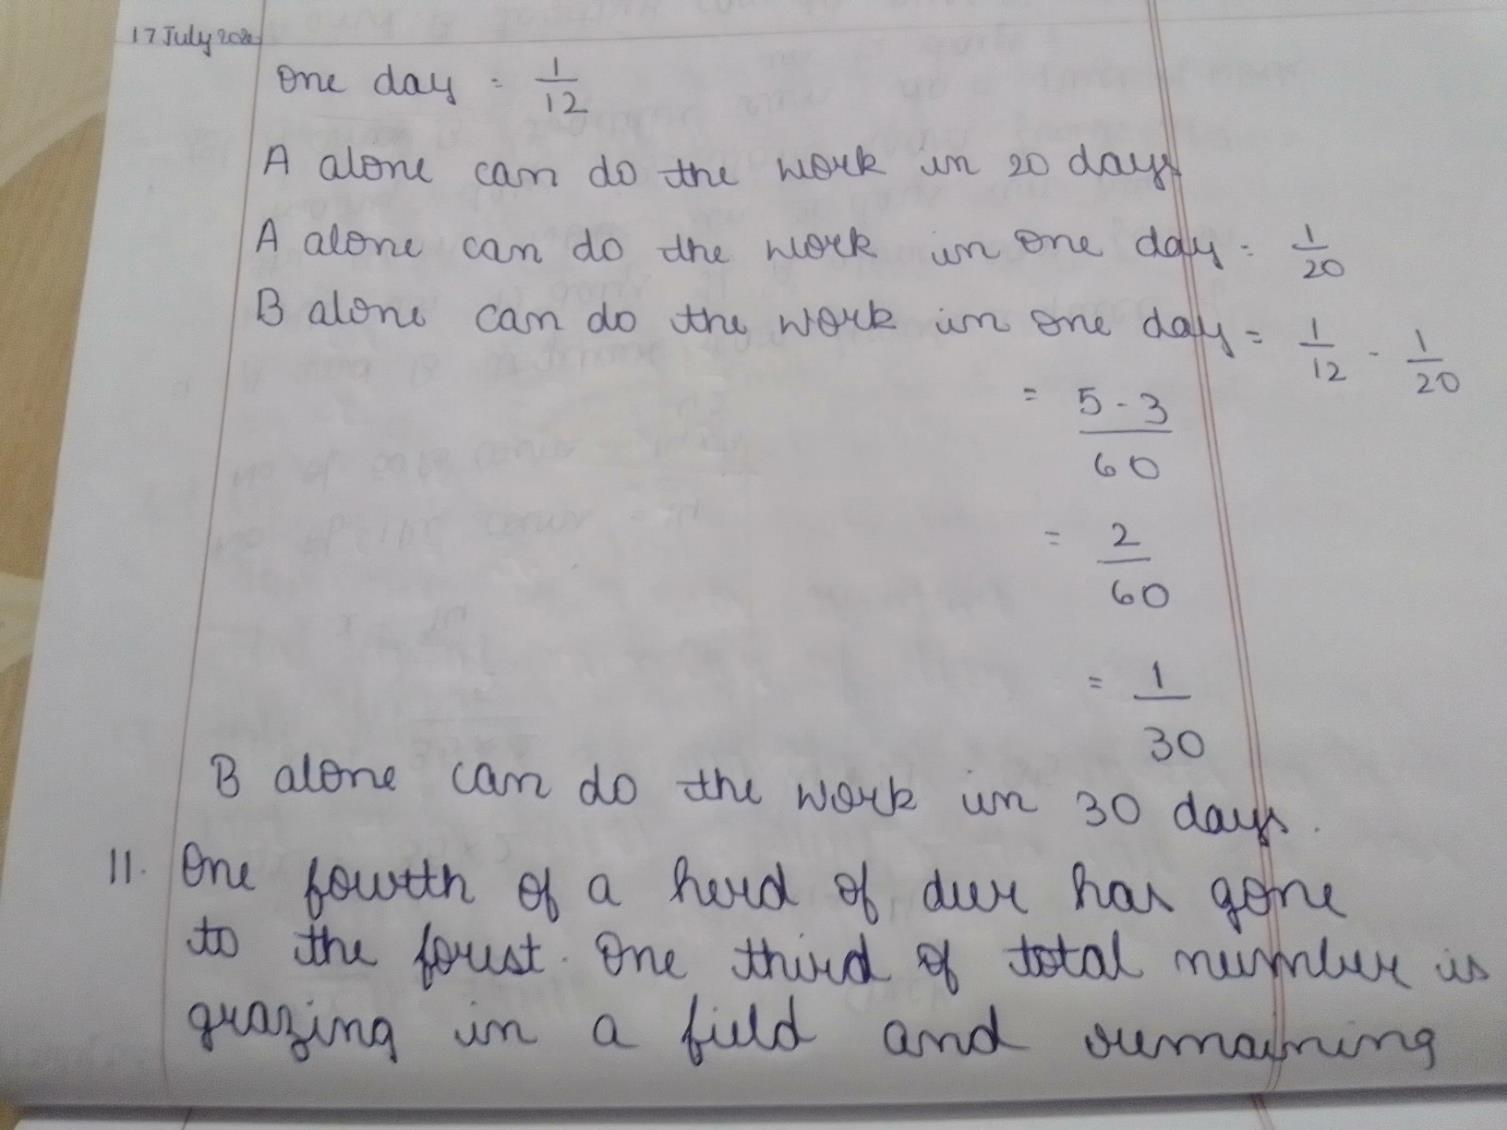 17 July 202
One day = 1/12
A alone can do the work in 20 days
A alone can do the work in one day = 1/20
B alone can do the work in one day = 1/12 - 1/20
= 5-3/60
= 2/60
= 1/30
B alone can do the work in 30 days.
11. One fourth of a herd of deer has gone
to the forest. One third of total number is
grazing in a field and remaining